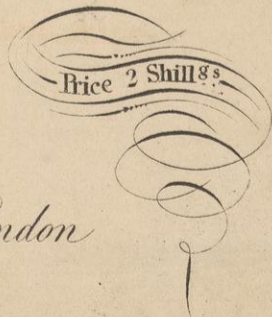 Price 2 Shillgs
ndon